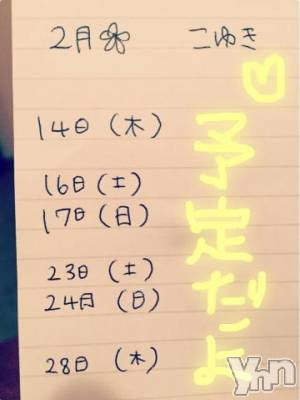 2月 こゆき
14日(木)
16日(土)
17日(日)
23日(土)
24月(日)
28日(木)
予定だよ
Yhn